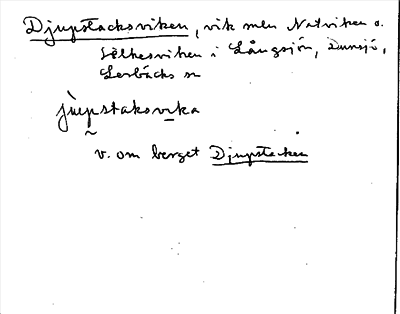 Djupstacksviken, vik mln Notviken o.
i Långsjön, Dunsjö,
Lerbäcks sn
jùpstaksvika
v. om berget Djupstacken